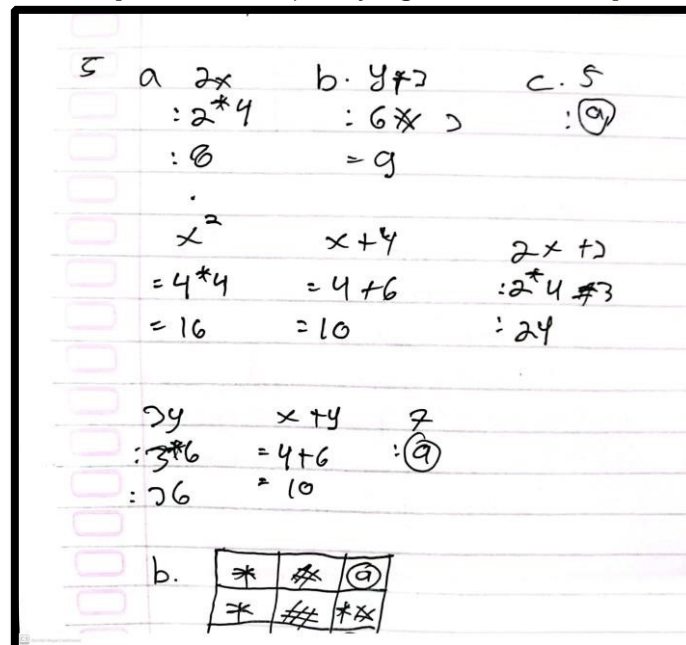 5 a 2x b. y#3 c. 5
: 2*4 : 6# 3 : ⓐ
: 8 = 9
x² x+y 2x+3
= 4*4 = 4+6 : 2*4 #3
= 16 = 10 : 24
3y x+y 7
: 3*6 = 4+6 : ⓐ
: 36 = 10
b. * # ⓐ
* # *#